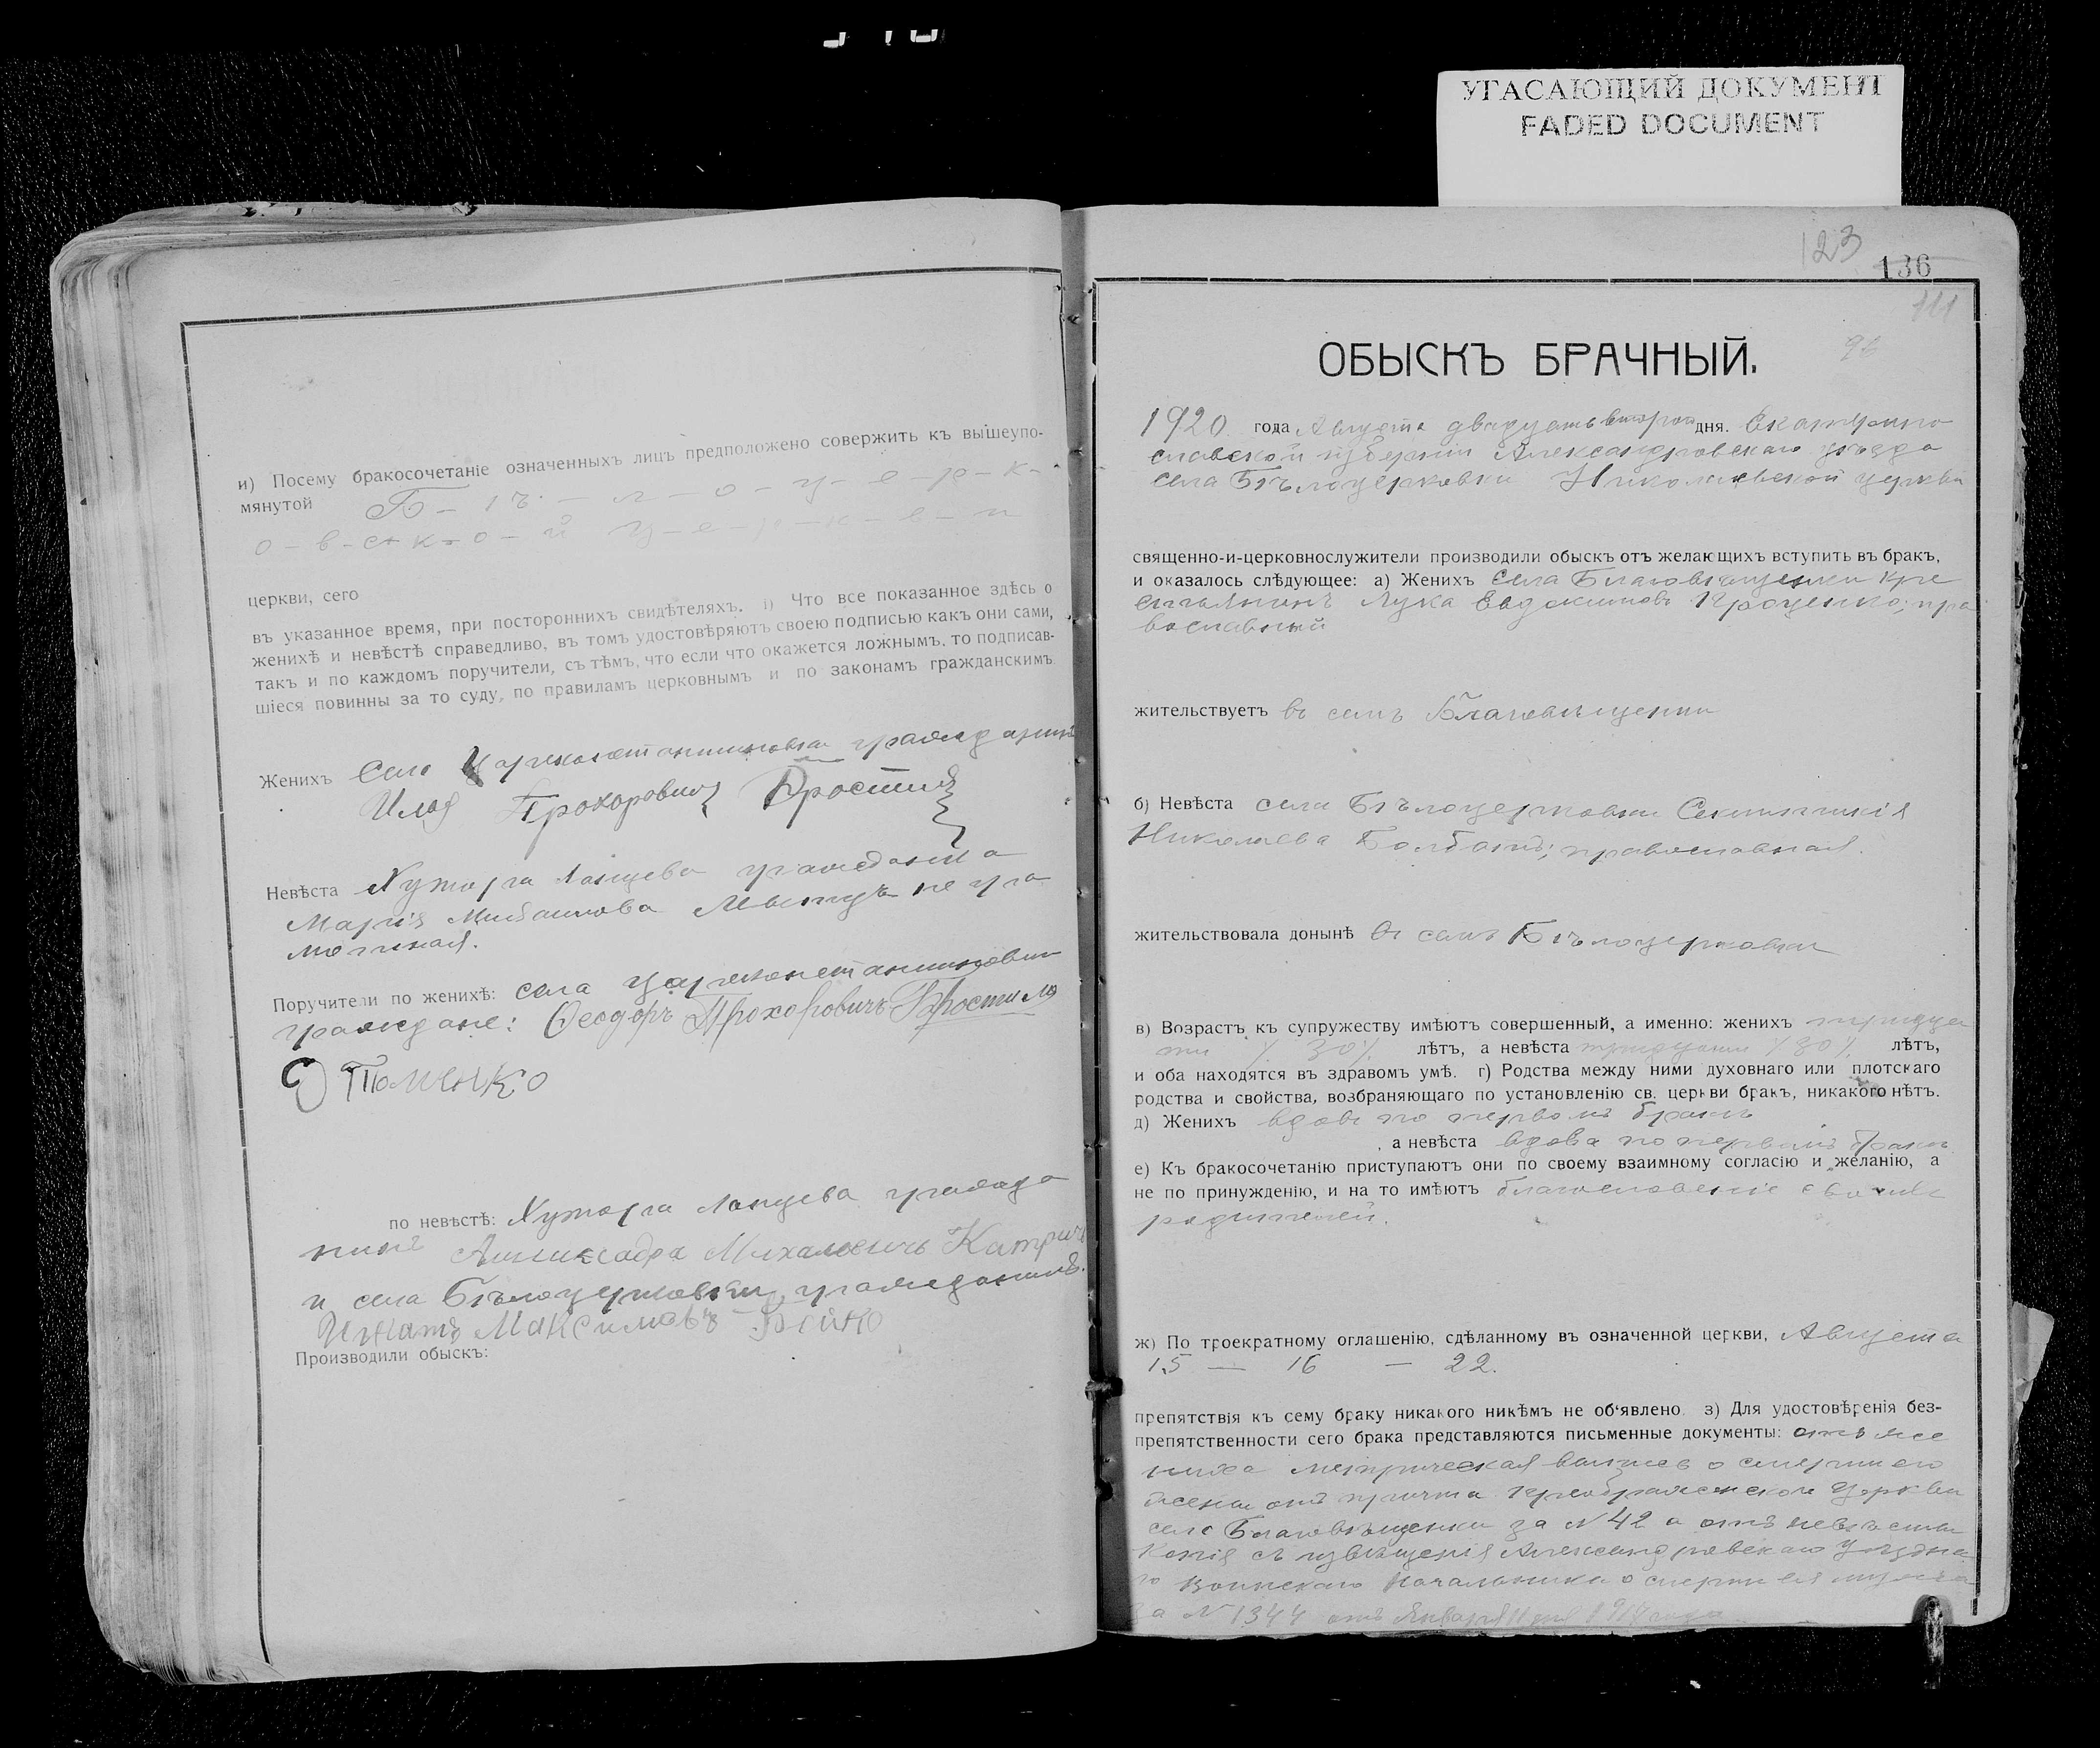 УГАСАЮЩИЙ ДОКУМЕНТ
FADED DOCUMENT
и) Посему бракосочетаніе означенныхъ лицъ предположено совержить къ вышеупо-
мянутой Б-ѣ-л-о-ц-е-р-к-
о-в-с-к-о-й ц-е-р-к-в-и
церкви, сего
въ указанное время, при постороннихъ свидѣтеляхъ. і) Что все показанное здѣсь о
женихѣ и невѣстѣ справедливо, въ томъ удостовѣряютъ своею подписью какъ они сами,
такъ и по каждомъ поручители, съ тѣмъ, что если что окажется ложнымъ, то подписав-
шіеся повинны за то суду, по правиламъ церковнымъ и по законамъ гражданскимъ.
Женихъ Села Цареконстантиновки гражданинъ
Илья Прохоровичъ Простиля
Невѣста Хутора Ланцева гражданка
Марія не гра
мотная.
Поручители по женихѣ: села Цареконстантиновки
граждане: Феодоръ Прохоровичъ Простиля
по невѣстѣ: Хутора Ланцева гражда
нинъ Александра Михаловичъ
и села Бѣлоцерковки гражданинъ
Игнатъ Максимовъ
Производили обыскъ:
123
136
111
96
ОБЫСКЪ БРАЧНЫЙ.
1920 года Августа двадцать второго дня. Екатерино
славской губерніи Александровскаго уѣзда
села Бѣлоцерковки Николаевской церкви
священно-и-церковнослужители производили обыскъ отъ желающихъ вступить въ бракъ,
и оказалось слѣдующее: а) Женихъ села Благовѣщенки кре
стьянинъ Лука Евдокимовъ Проценко; пра
вославный
жительствуетъ въ селѣ Благовѣщенки
б) Невѣста села Бѣлоцерковки
Николаева православная.
жительствовала донынѣ въ селѣ Бѣлоцерковки
в) Возрастъ къ супружеству имѣютъ совершенный, а именно: женихъ тридца
ти /30/ лѣтъ, а невѣста тридцати /30/ лѣтъ,
и оба находятся въ здравомъ умѣ. г) Родства между ними духовнаго или плотскаго
родства и свойства, возбраняющаго по установленію св. церкви бракъ, никакого нѣтъ.
д) Женихъ вдовъ по первомъ бракѣ
, а невѣста вдова по первомъ бракѣ
е) Къ бракосочетанію приступаютъ они по своему взаимному согласію и желанію, а
не по принужденію, и на то имѣютъ благословеніе своихъ
родителей.
ж) По троекратному оглашенію, сдѣланному въ означенной церкви, Августа
15 — 16 — 22.
препятствія къ сему браку никакого никѣмъ не об'явлено. з) Для удостовѣренія без-
препятственности сего брака представляются письменные документы: отъ же
ниха метрическая выпись о смерти его
жены отъ причта Преображенской церкви
села Благовѣщенки за № 42 а отъ невѣсты
Копія съ извѣщенія Александровскаго Уѣздна
го Воинскаго Начальника о смерти ея мужа
за № 1344 отъ Января